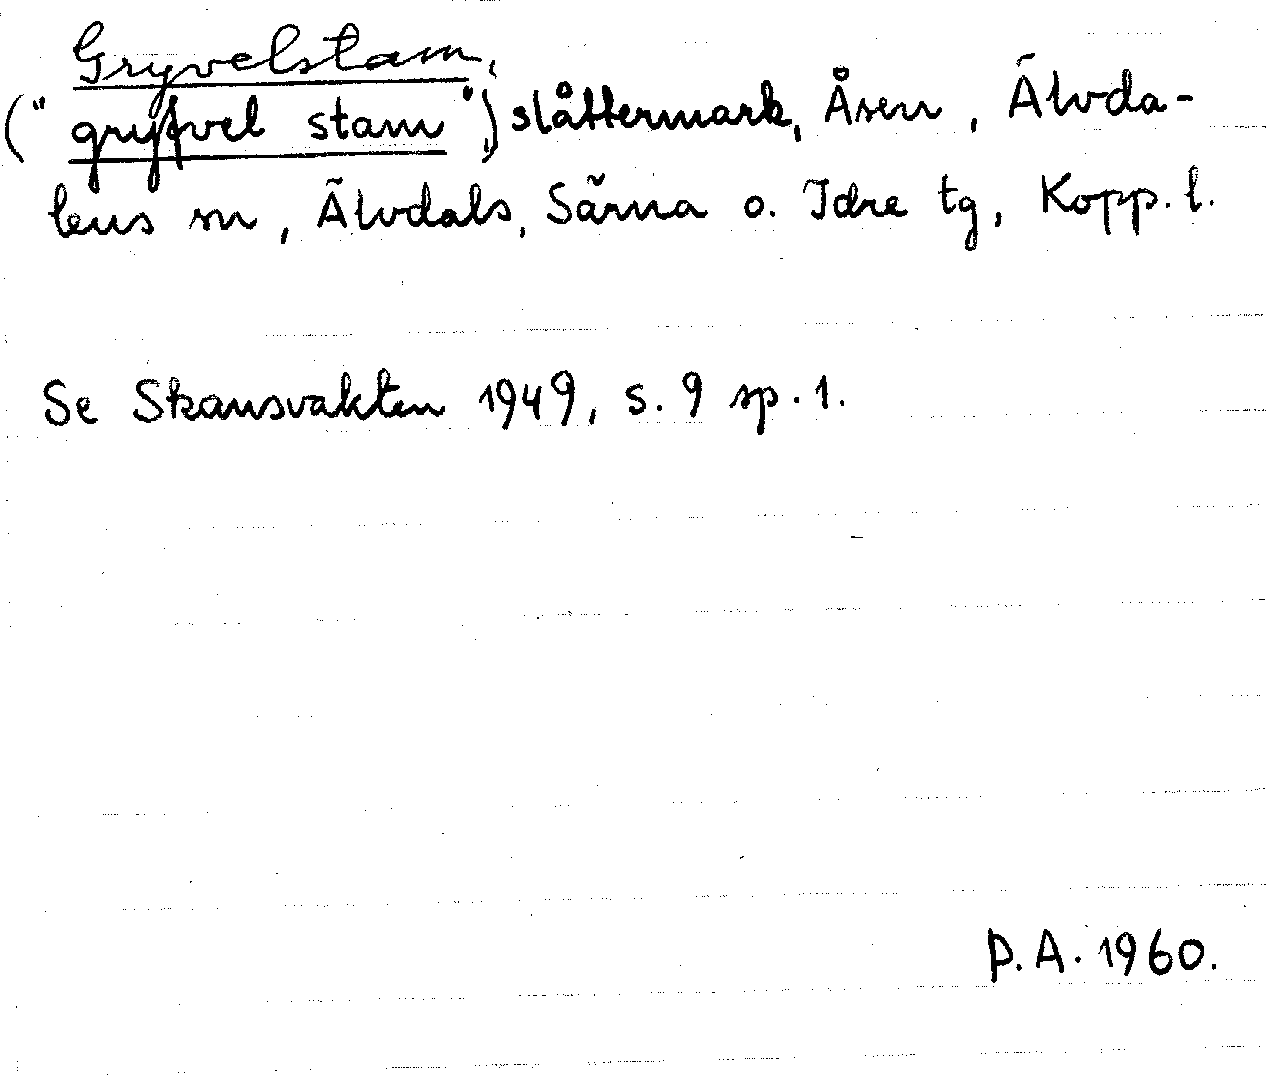 Gryvelstam,
("gryfvel stam") slåttermark, Åsen, Älvda-
lens sn, Älvdals, Särna o. Idre tg, Kopp. l.
Se Skansvakten 1949, s. 9 sp. 1.
P.A. 1960.